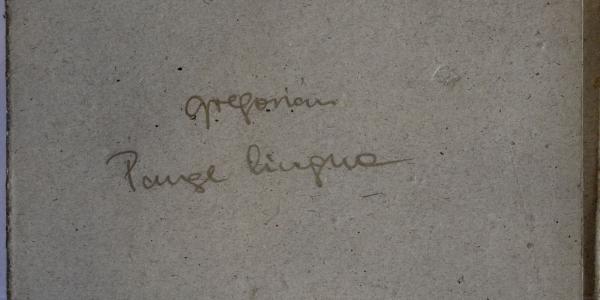 gregorian
Pange lingua